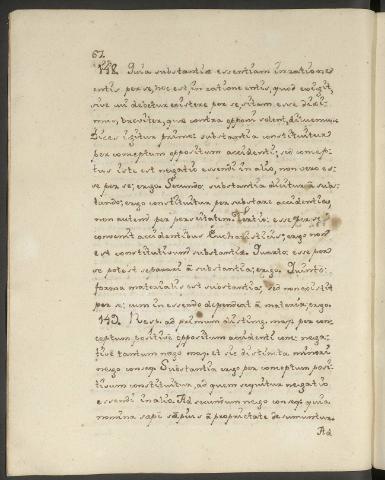 62.
148. Quia substantiæ essentiam in ratione
entis per se, hoc est, in ratione entis, quod exigit,
sive cui debetur existere per se, sitam esse dixi-
mus, breviter, quæ contra opponi solent, diluemus.
Dices igitur primo: substantia constituitur
per conceptum oppositum accidenti; sed concep-
tus iste est negatio essendi in alio, non vero es-
se per se; ergo. Secundo: substantia dicitur a subs-
tando; ergo constituitur per substare accidentia,
non autem per perseitatem. Tertio: esse per se
convenit accidentibus Eucharisticis; ergo non
est constitutivum substantiæ. Quarto: esse per
se potest separari a substantia; ergo. Quinto:
forma materialis est substantia, sed non existit
per se; cum in essendo dependeat a materia; ergo.
149. Resp. ad primum disting. maj. per con-
ceptum positive oppositum accidenti conc. nega-
tive tantum nego maj. et sic distincta minori
nego conseq. Substantia ergo per conceptum posi-
tivum constituitur, ad quem sequitur negatio
essendi in alio. Ad secundum nego conseq. quia
nomina sæpe a proprietate desumuntur.
Ad